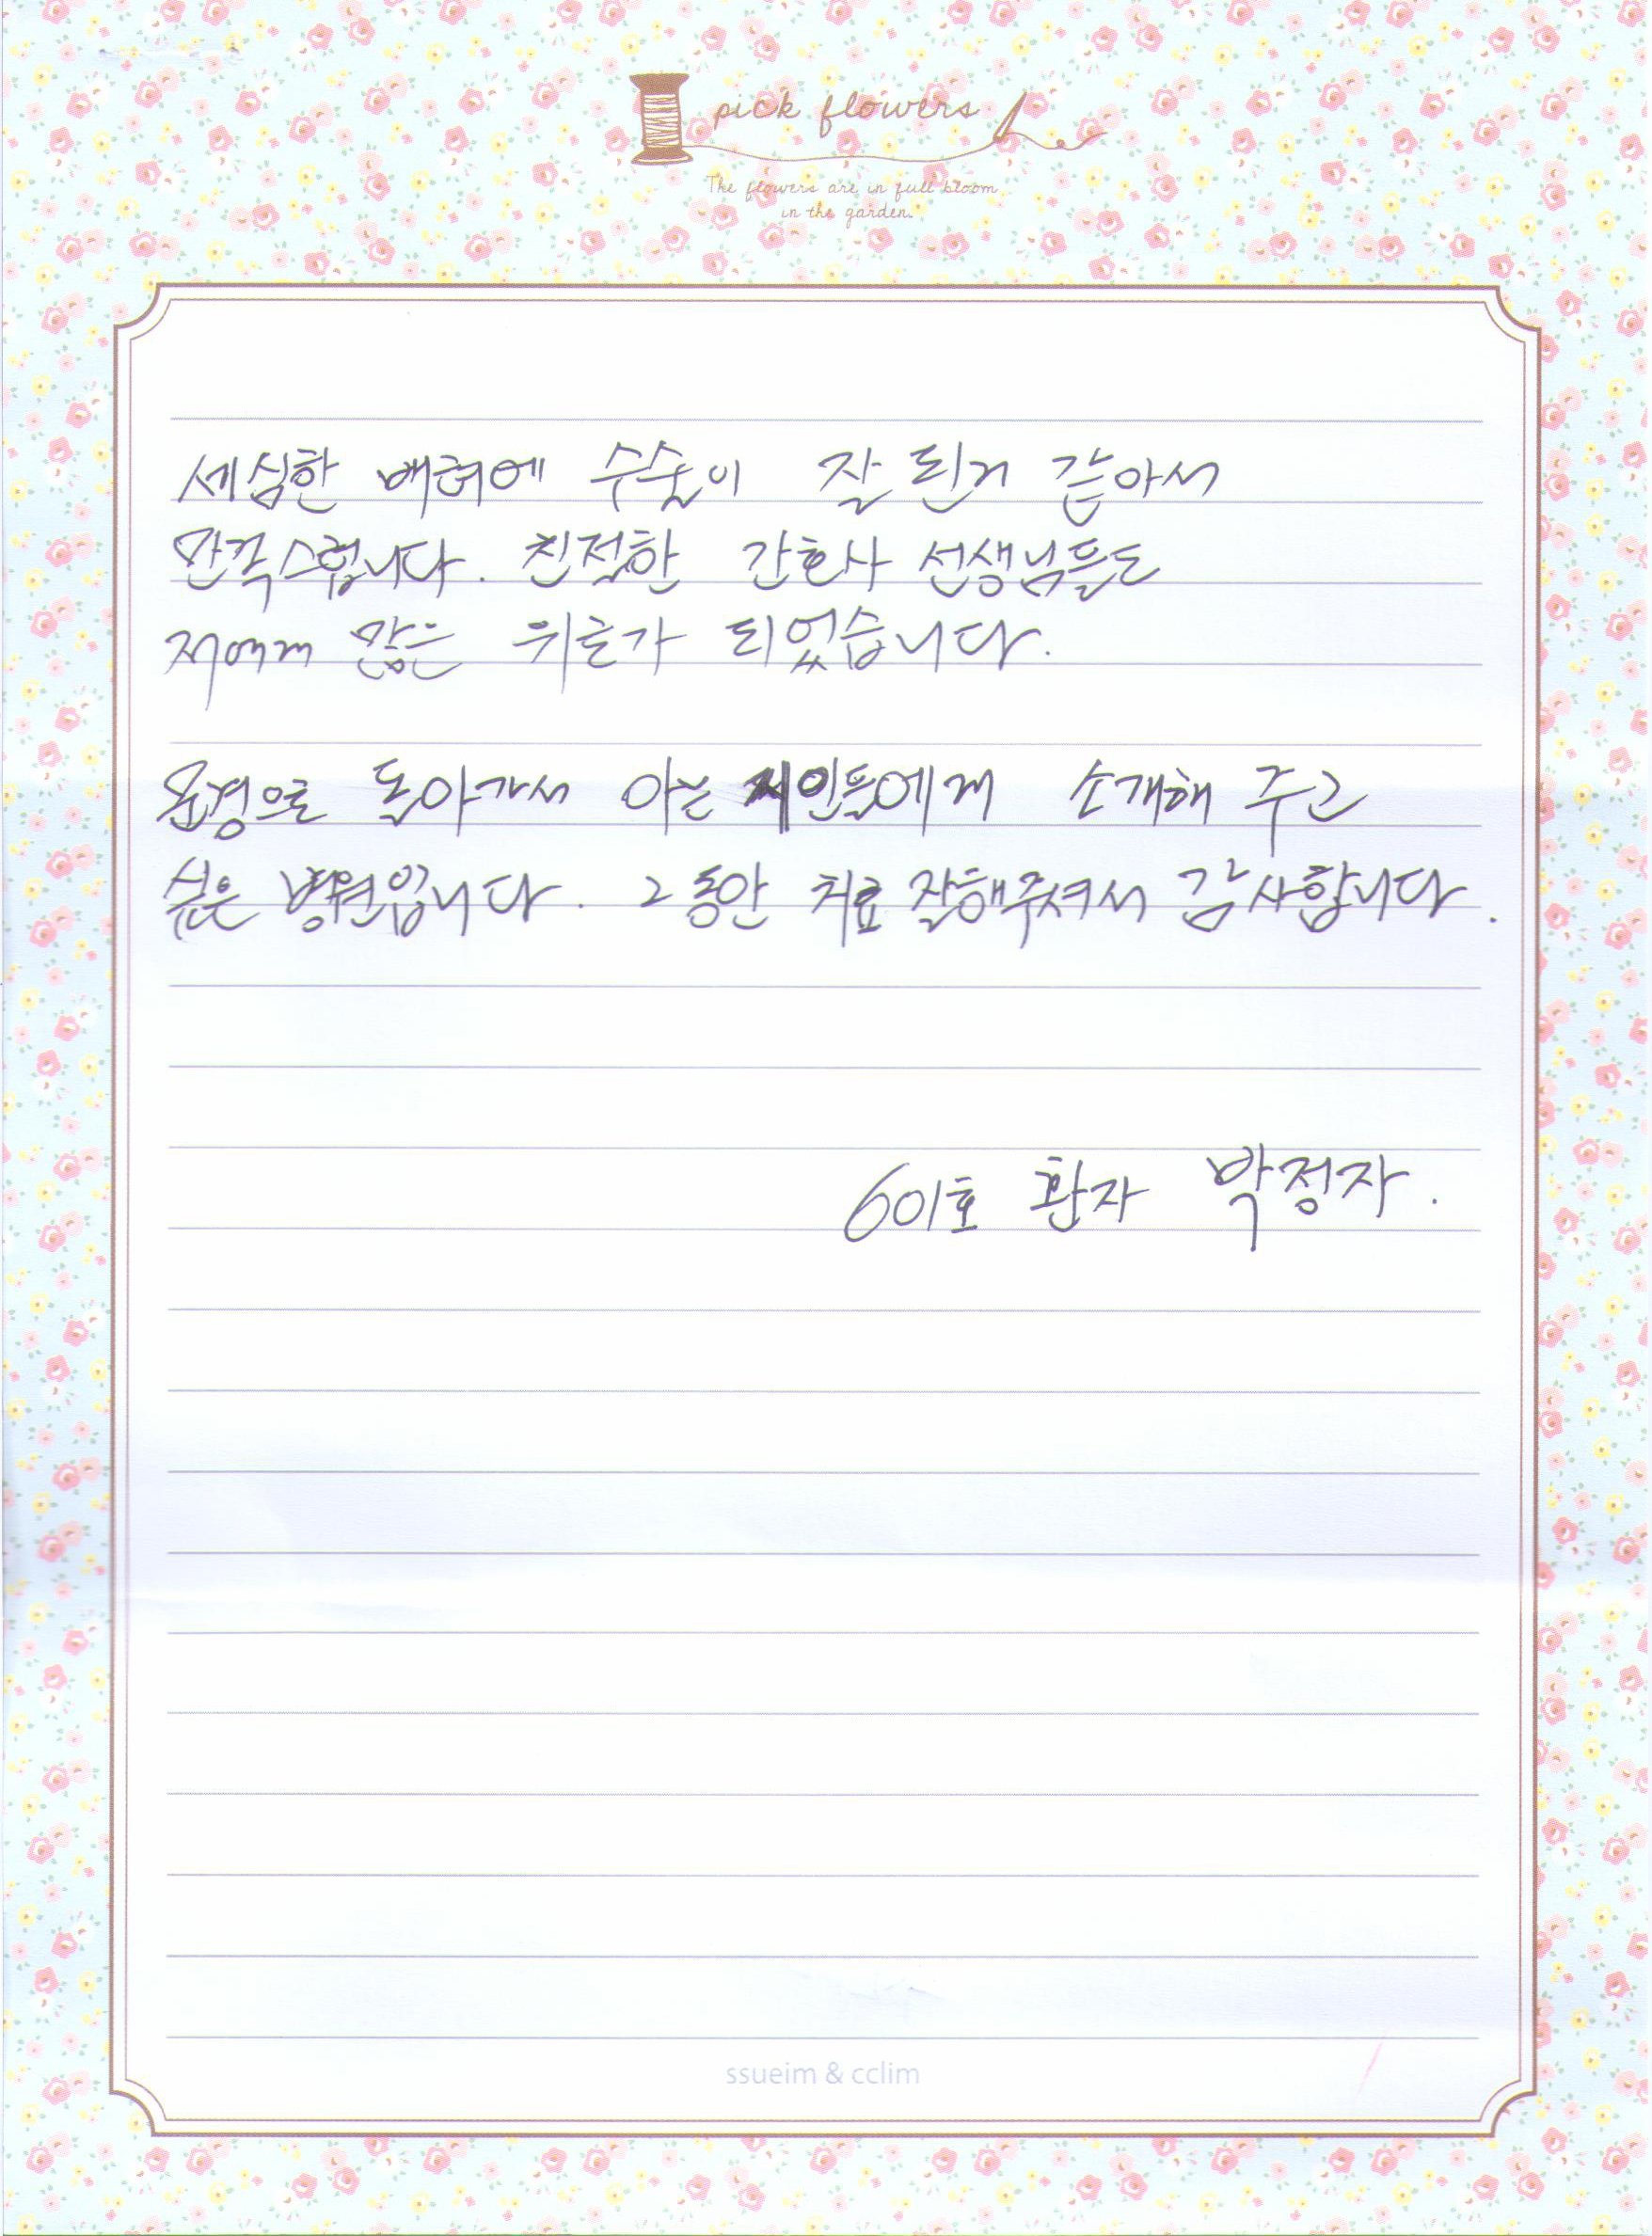 pick flowers
The flowers are in full bloom
in the garden.
세심한 배려에 수술이 잘 된거 같아서
만족스럽니다. 친절한 간호사 선생님들도
저에게 많은 위로가 되었습니다.
문경으로 돌아가서 아는 지인들에게 소개해 주고
싶은 병원입니다. 그동안 치료 잘해주셔서 감사합니다.
601호 환자 박정자.
ssueim & cclim